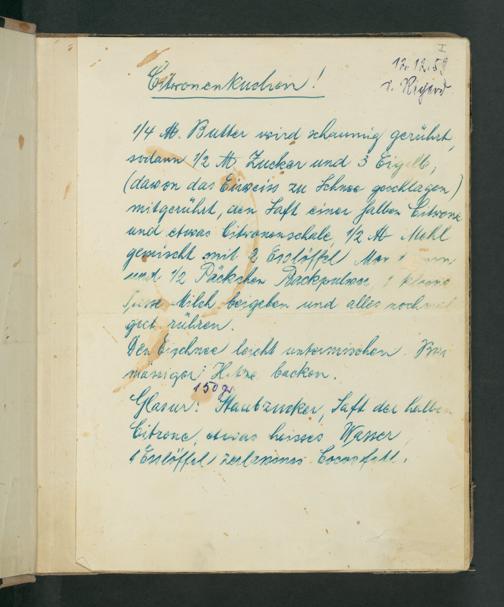 I
12.12.59
Citronenkuchen!
1/4 ℔. Butter wird schaumig gerührt,
sodann 1/2 ℔. Zucker und 3 Eigelb,
(davon das Eiweiss zu Schnee geschlagen)
mitgerührt, den Saft einer halben Citrone
und etwas Citronenschale, 1/2 ℔ Mehl
gemischt mit 2 Esslöffel
und 1/2 Päckchen Backpulver, 1 kleine
Tasse Milch beigeben und alles nochmal
gut rühren.
Den Eischnee leicht untermischen. Bei
mässiger Hitze backen.
150 gr
Glasur: Staubzucker, Saft der halben
Citrone, etwas heisses Wasser
1 Esslöffel zerlassenes Cocosfett.